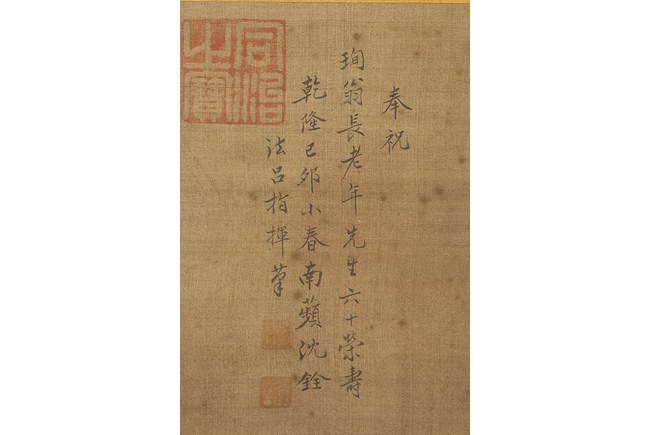 奉祝
珣翁長老年先生六十榮壽
乾隆己夘小春南蘋沈銓
法吕指揮筆
同治之寶